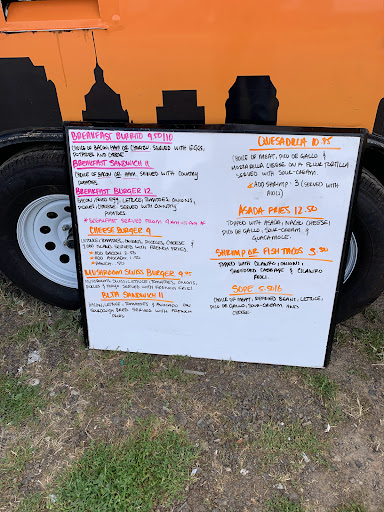 BREAKFAST BURRITO 9.50/10
CHOICE OF BACON, HAM OR CHORIZO. SERVED WITH EGGS,
POTATOES AND CHEESE.
BREAKFAST SANDWICH 11
CHOICE OF BACON OR HAM. SERVED WITH COUNTRY
POTATOES
BREAKFAST BURGER 12
BACON, FRIED EGG, LETTUCE, TOMATOES, ONIONS,
PICKLES, CHEESE. SERVED WITH COUNTRY
POTATOES
* BREAKFAST SERVED FROM
CHEESE BURGER 9
LETTUCE, TOMATOES, ONIONS, PICKLES, CHEESE &
ISLAND. SERVED WITH FRENCH FRIES.
* ADD BACON
* ADD AVOCADO
* RANCH .50
MUSHROOM SWISS BURGER 9.95
MUSHROOMS, SWISS, LETTUCE, TOMATOES, ONIONS,
PICKLES & MAYO. SERVED WITH FRENCH FRIES
BLTA SANDWICH 11
BACON, LETTUCE, TOMATOES & AVOCADO ON
SOURDOUGH BREAD. SERVED WITH FRENCH
FRIES
QUESADILLA 10.95
CHOICE OF MEAT, PICO DE GALLO &
MOZZARELLA CHEESE ON A FLOUR TORTILLA
SERVED WITH SOUR-CREAM.
* ADD SHRIMP: 3 (SERVED WITH
AIOLI)
ASADA FRIES 12.50
TOPPED WITH ASADA, NACHO CHEESE,
PICO DE GALLO, SOUR-CREAM &
GUACAMOLE.
SHRIMP OR FISH TACOS 3.50
TOPPED WITH CILANTRO, ONIONS,
SHREDDED CABBAGE & CILANTRO
AIOLI.
SOPE 5.50
CHOICE OF MEAT, REFRIED BEANS, LETTUCE,
PICO DE GALLO, SOUR-CREAM AND
CHEESE